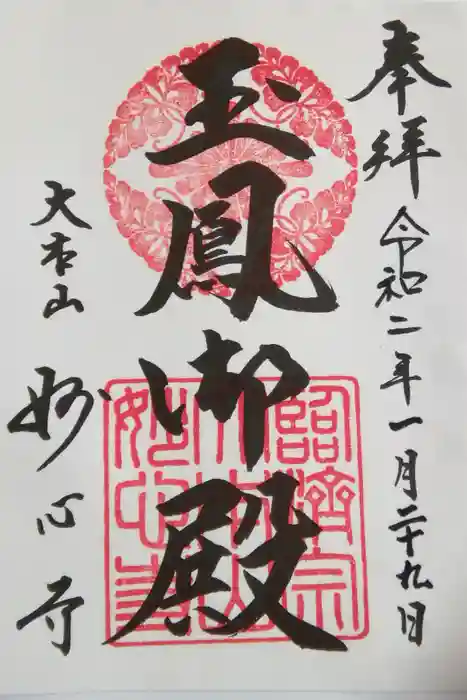 奉拝
令和二年一月二十九日
玉鳳御殿
臨済宗
大本山
妙心寺
大本山
妙心寺